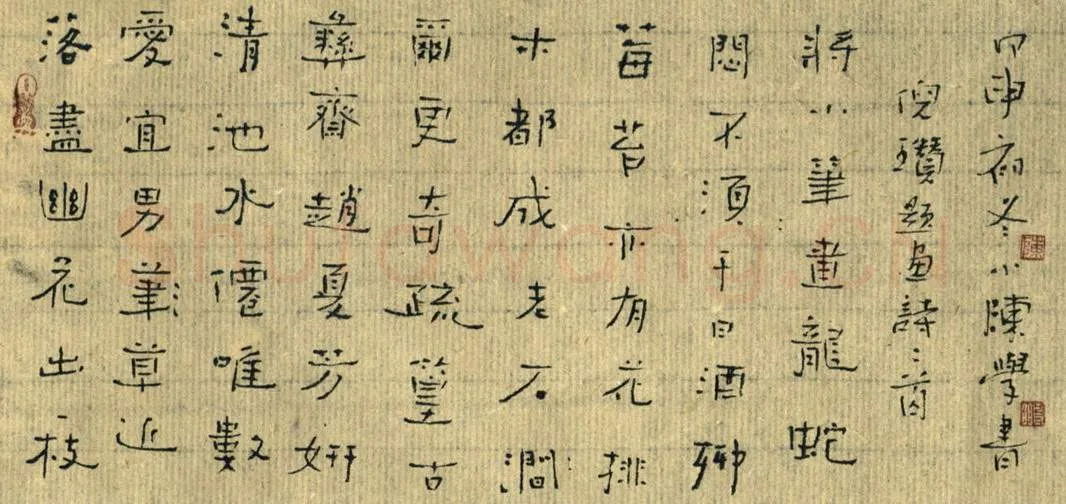 落盡幽花出枝
愛宜男筆草近
清池水僊唯數
彝齋趙夏芳妍
爾更奇疏篁古
木都成老石澗
莓苔亦有花排
悶不須千日酒聊
將小筆畫龍蛇
倪瓚題畫詩二首
甲申初冬小陳學書
shufawang.cn